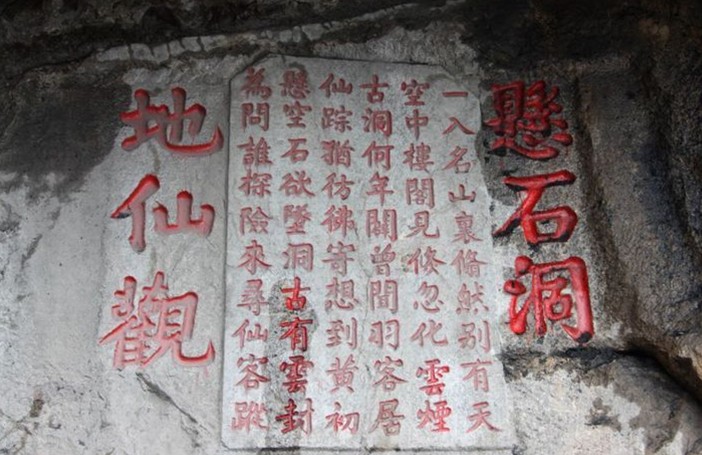 懸石洞
一入名山裏脩然别有天
空中樓閣見倐忽化雲煙
古洞何年闢曾聞羽客居
仙踪猶彷彿寄想到黃初
懸空石欲墜洞古有雲封
為問誰探險來尋仙客蹤
地仙觀